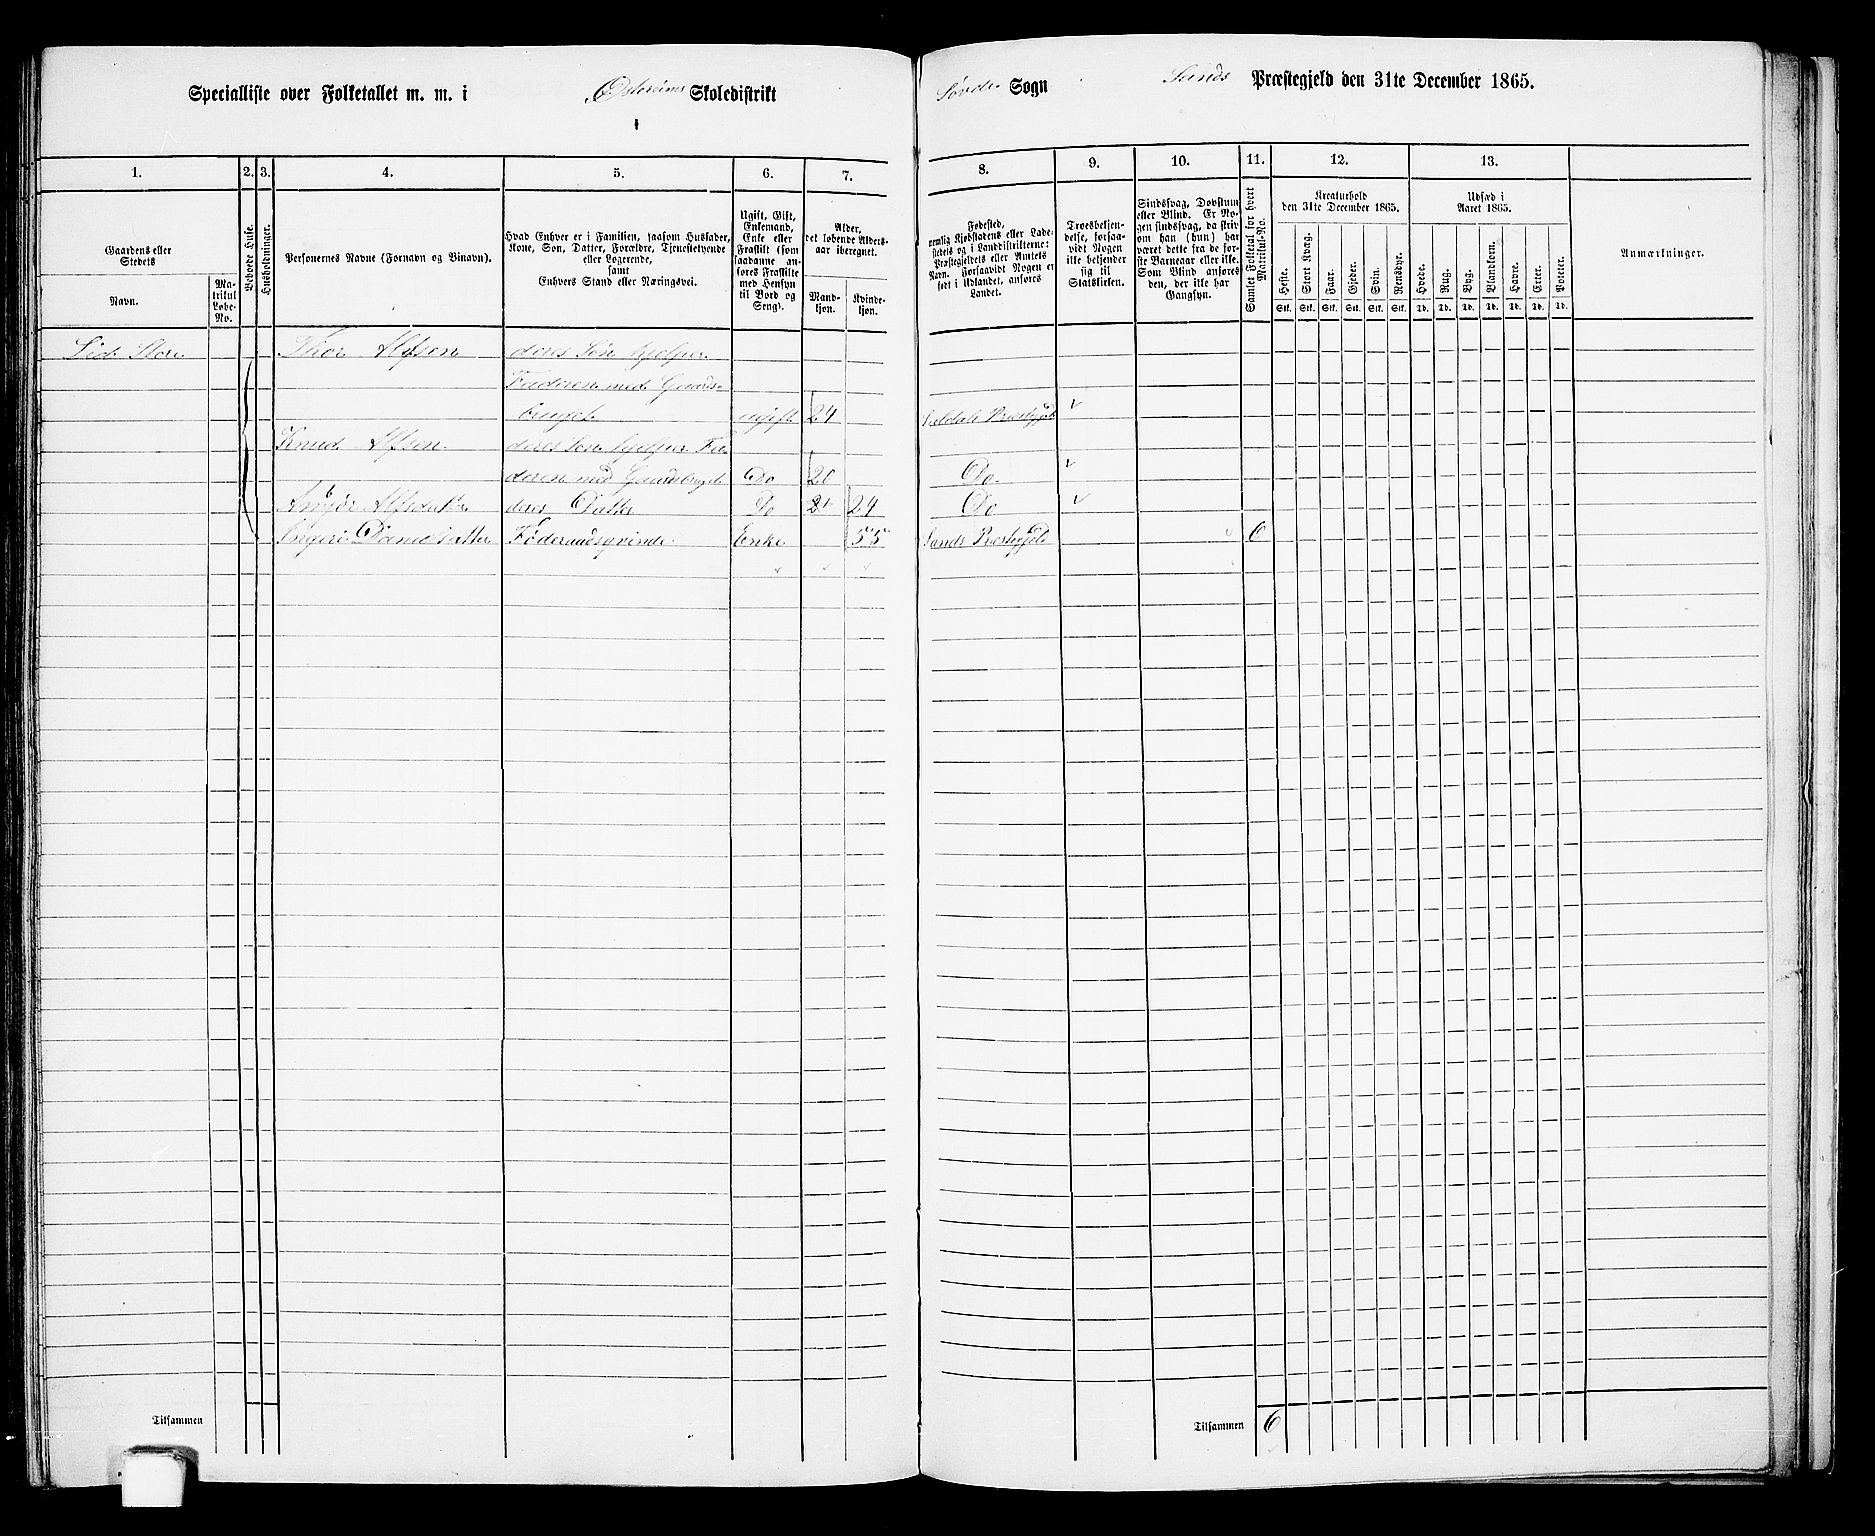 Specialliste over Folketallet m. m. i Østreims Skoledistrikt
Søvde Sogn Sands Præstegjeld den 31te December 1865.
1. 2. 3. 4. 5. 6. 7.
8. 9. 10. 11. 12. 13.
Gaardens eller
Stedets
Navn.
Ma-
trikul
Løbe-
No.
Beboede Huse.
Husholdninger.
Personernes Navne (Fornavn og Binavn).
Hvad Enhver er i Familien, saasom Husfader,
Kone, Søn, Datter, Forældre, Tjenestetyende
eller Logerende,
samt
Enhvers Stand eller Næringsvei.
Ugift, Gift,
Enkemand,
Enke eller
Fraskilt (som
saadanne an-
føres Fraskilte
med Hensyn
til Bord og
Seng).
Alder,
det løbende Alders-
aar iberegnet.
Mand-
kjøn.
Kvinde-
kjøn.
Fødested,
nemlig Kjøbstadens eller Lade-
stedets og i Landdistrikterne:
Præstegjeldets eller Amtets
Navn. Forsaavidt Nogen er
født i Udlandet, anføres
Landet.
Troesbekjen-
delse, forsaa-
vidt Nogen
ikke bekjender
sig til
Statskirken.
Sindssvag, Døvstum
eller Blind. Er No-
gen sindssvag, da skriv
om han (hun) har
været dette fra de før-
ste Barneaar eller ikke.
Som Blind anføres
den, der ikke har
Gangsyn.
Samlet Folketal for hvert
Matrikul-No.
Kreaturhold
den 31te December 1865.
Heste. Stort Kvæg. Faar. Gjeder. Svin. Rensdyr.
Stk. Stk. Stk. Stk. Stk. Stk.
Udsæd i
Aaret 1865.
Hvede. Rug. Byg. Blandkorn. Havre. Erter. Poteter.
Td. Td. Td. Td. Td. Td. Td.
Anmærkninger.
Lid Store Thor Alfsen deres Søn hjelper
Faderen med Gaards-
bruget ugift 24 Præstegjeld
Knud Alfsen deres Søn hjelper Fa-
deren med Gaardsbruget Do 20 Do
Alfsdatter deres Datter Do 24 Do
Ingeri Føderaadsqvinde Enke 55 Sands Præstegjeld 6
Tilsammen
Tilsammen 6